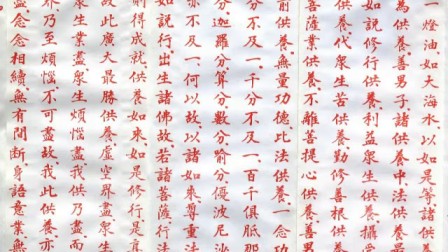 一燈油如大海水以如是等諸供
為供養、善男子、諸供養中、法供養
如說修行供養、利益眾生供養、攝
供養、代眾生苦供養、勤修善根供
菩薩業供養、不離菩提心供養、善男
前供養無量功德、比法供養一念功
分不及一、千分不及一、百千俱胝那
分、迦羅分、算分、數分、喻分、優波尼沙
亦不及一、何以故、以諸如來尊重法
如說行、出生諸佛故、若諸菩薩行法
則得成就供養如來、如是修行、是
故、此廣大最勝供養、虛空界盡、眾生
眾生業盡、眾生煩惱盡、我供乃盡、而
界乃至煩惱、不可盡故、我此供養、亦
盡、念念相續、無有間斷、身語意業、無